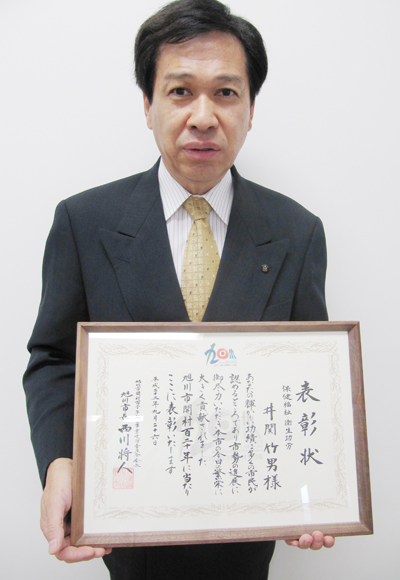 表彰状
保健福祉 衛生功労
井関竹男様
あなたの輝かしい功績は多くの市民が
認めるところであり市勢の進展に
御尽力いただき本市の今日の繁栄に
大きく貢献されました
旭川市開村百二十年に当り
ここに表彰いたします
平成二十二年九月二十六日
旭川市長 西川将人